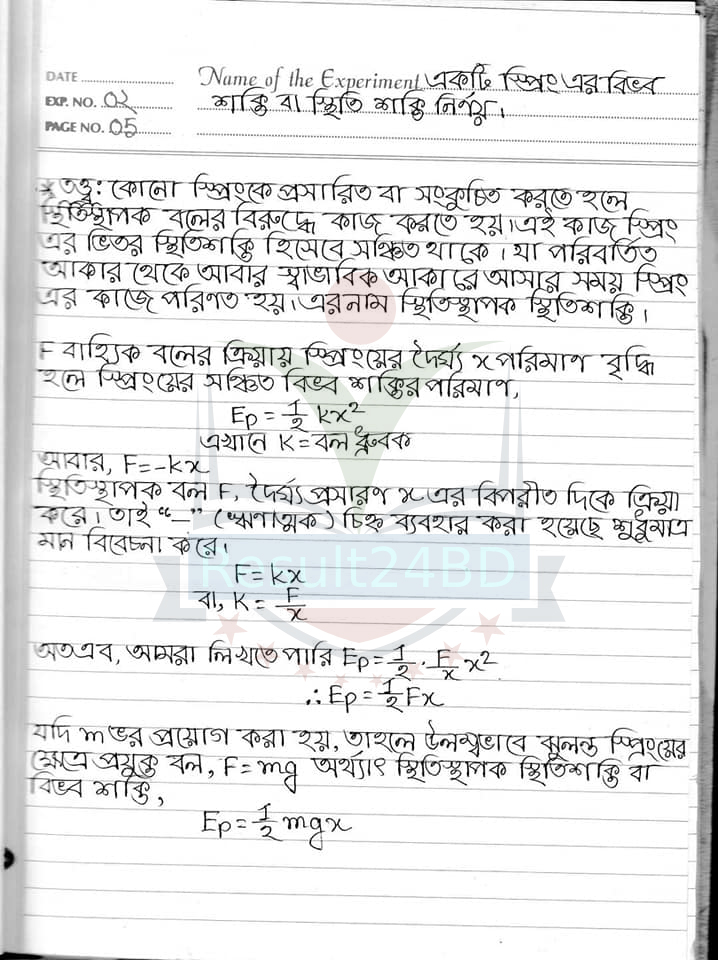 DATE
Name of the Experiment একটি স্প্রিং এর বিভব
EXP. NO. 02
শক্তি বা স্থিতি শক্তি নির্ণয়।
PAGE NO. 05
* তত্ত্ব: কোনো স্প্রিংকে প্রসারিত বা সংকুচিত করতে হলে
স্থিতিস্থাপক বলের বিরুদ্ধে কাজ করতে হয়। এই কাজ স্প্রিং
এর ভিতর স্থিতিশক্তি হিসেবে সঞ্চিত থাকে। যা পরিবর্তিত
আকার থেকে আবার স্বাভাবিক আকারে আসার সময় স্প্রিং
এর কাজে পরিণত হয়। এর নাম স্থিতিস্থাপক স্থিতিশক্তি।
F বাহ্যিক বলের ক্রিয়ায় স্প্রিংয়ের দৈর্ঘ্য x পরিমাণ বৃদ্ধি
হলে স্প্রিংয়ের সঞ্চিত বিভব শক্তির পরিমাণ,
Ep = 1/2 kx²
এখানে K = বল ধ্রুবক
আবার, F = -kx
স্থিতিস্থাপক বল F, দৈর্ঘ্য প্রসারণ x এর বিপরীত দিকে ক্রিয়া
করে। তাই "–" (ঋণাত্মক) চিহ্ন ব্যবহার করা হয়েছে শুধুমাত্র
মান বিবেচনা করে।
Result24BD
F = kx
বা, K = F/x
অতএব, আমরা লিখতে পারি Ep = 1/2 · F/x x²
∴ Ep = 1/2 Fx
যদি m ভর প্রয়োগ করা হয়, তাহলে উলম্বভাবে ঝুলন্ত স্প্রিংয়ের
ক্ষেত্রে প্রযুক্ত বল, F = mg অর্থ্যাৎ স্থিতিস্থাপক স্থিতিশক্তি বা
বিভব শক্তি,
Ep = 1/2 mgx